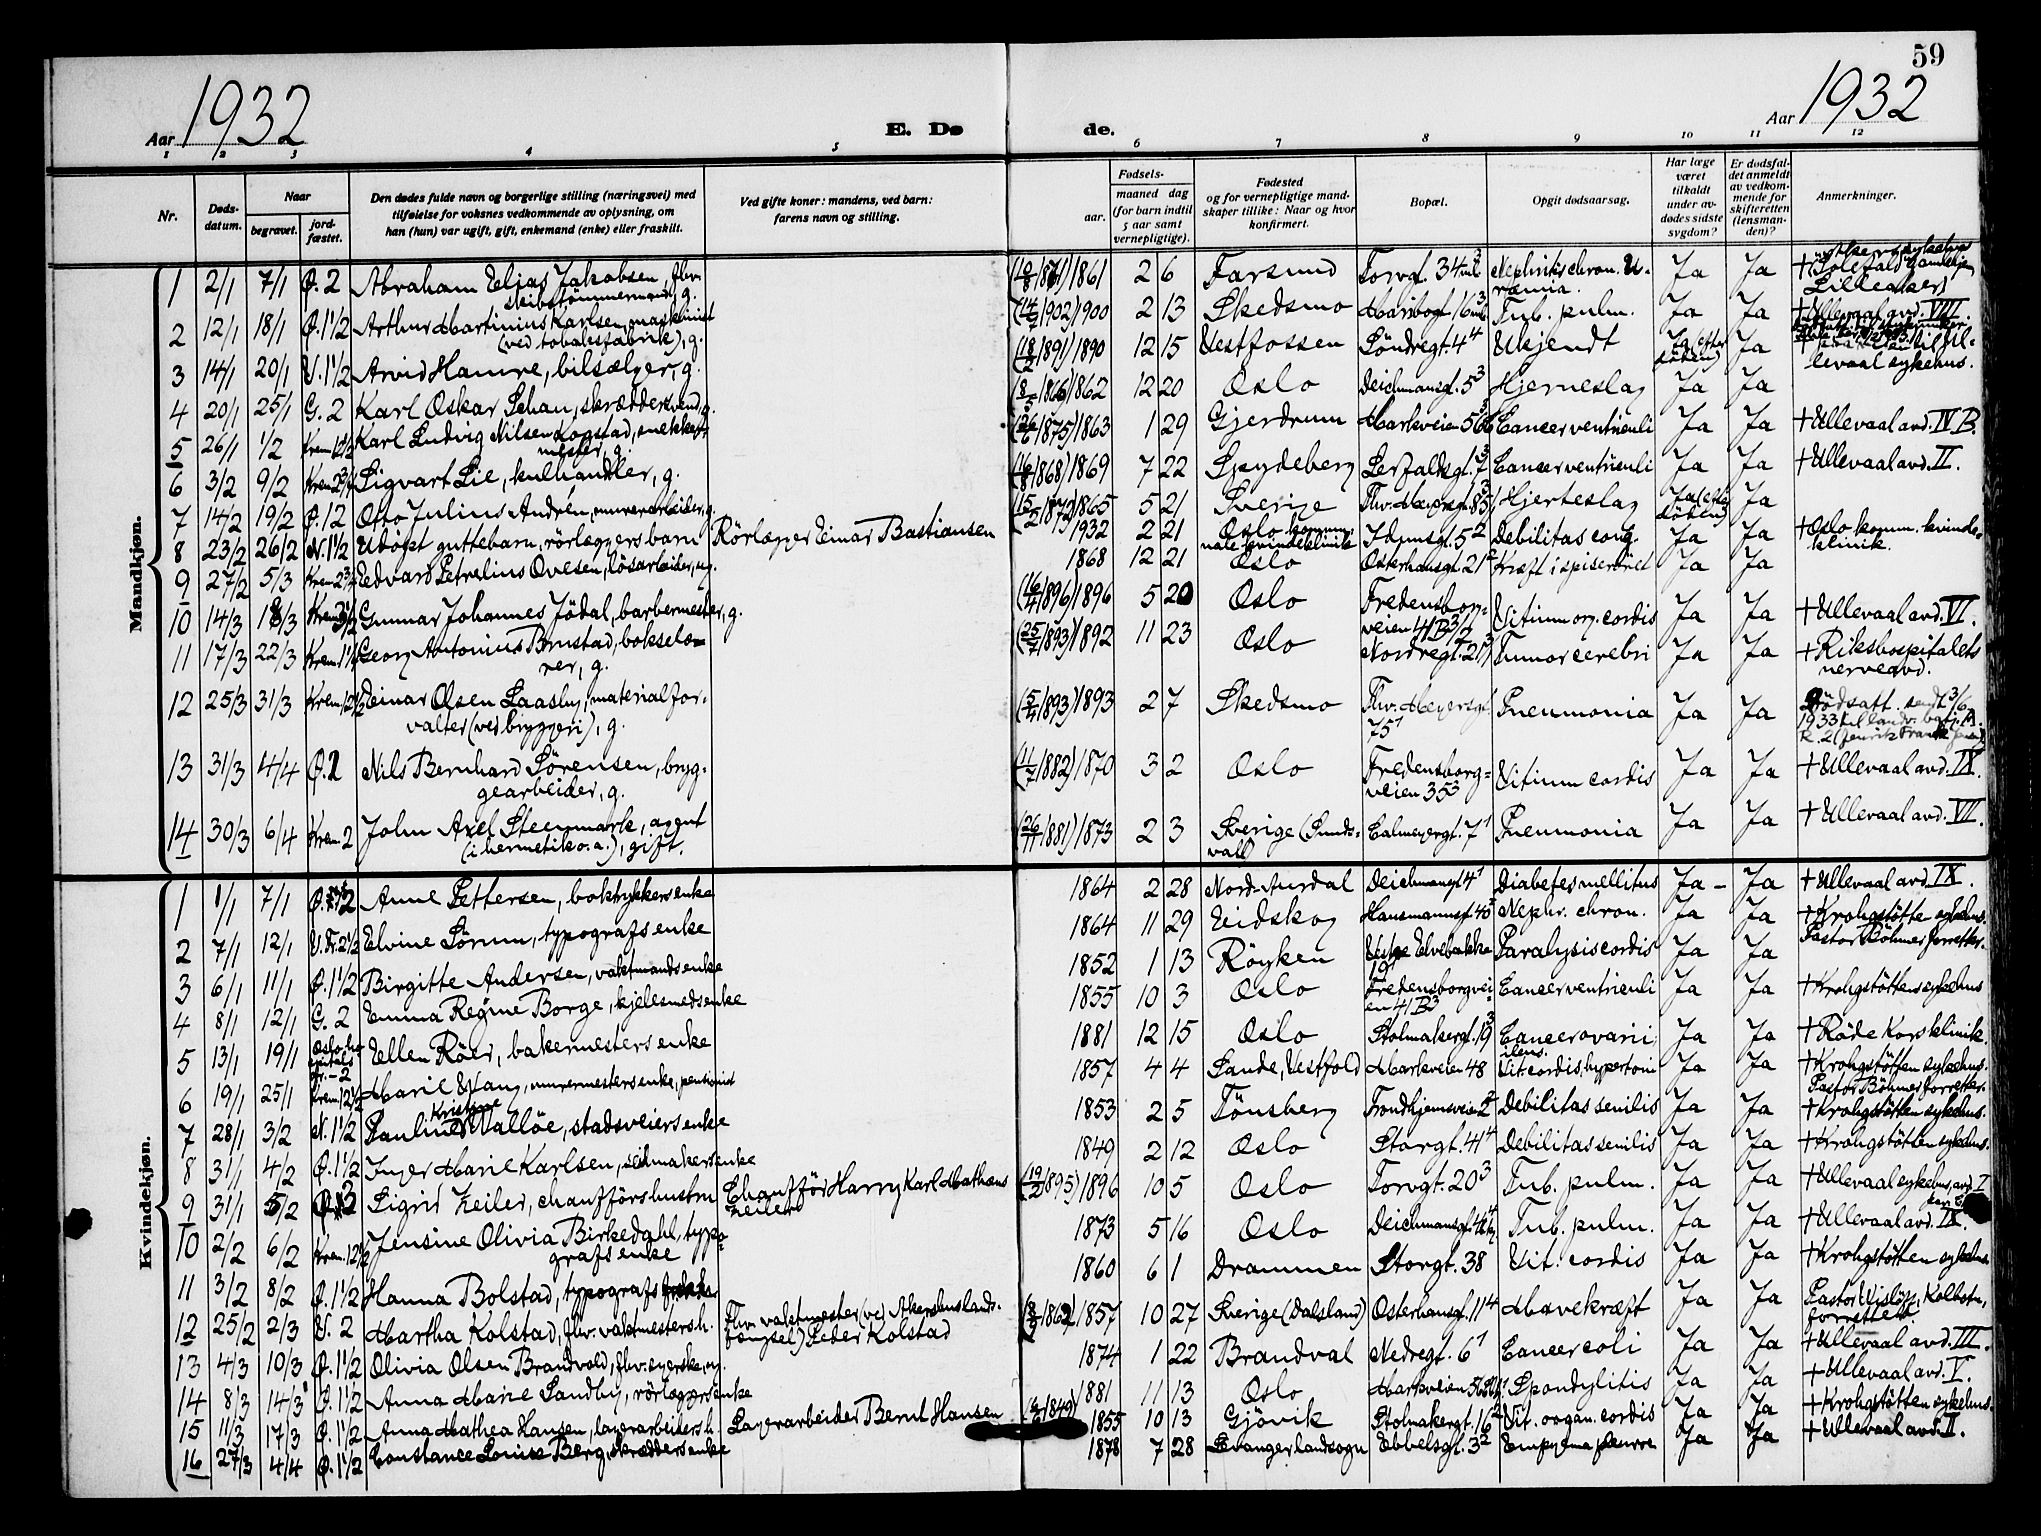 59
Aar 1932
E. Dø de.
Aar 1932
1 2 3 4 5 6 7 8 9 10 11 12
Nr. Døds-datum. Naar begravet. jord-fæstet. Den dødes fulde navn og borgerlige stilling (næringsvei) med tilføielse for voksnes vedkommende av oplysning, om han (hun) var ugift, gift, enkemand (enke) eller fraskilt. Ved gifte koner: mandens, ved barn: farens navn og stilling. Fødsels- aar. maaned dag (for barn indtil 5 aar samt vernepligtige). Fødested og for vernepligtige mand-skaper tillike: Naar og hvor konfirmert. Bopæl. Opgit dødsaarsag. Har læge været tilkaldt under av-dødes sidste sygdom? Er dødsfal-det anmeldt av vedkom-mende for skifteretten (lensman-den)? Anmerkninger.
Mandkjøn.
1 2/1 7/1 Ø. 2 Abraham Elias Jakobsen, fhv. skibstømmermand, g. 1861 2 6 Farsund Torvgt. 34 Nephritis chron. Uræmia. Ja Ja
2 12/1 18/1 Ø. 1 1/2 Arthur Martinius Karlsen, maskinist (ved tobaksfabrik), g. (1902) 1900 2 13 Skedsmo Maribogt. 16 Tub. pulm. Ja Ja + Ullevaal avd. VIII.
3 14/1 20/1 V. 1 1/2 Arvid Hamre, bilsælger, g. (1891) 1890 12 15 Vestfossen Söndregt. 4 4 Ukjendt Ja (efter döden) Ja levaal sykehus.
4 20/1 25/1 G. 2 Karl Oskar Lehan, skræddersvend, g. (1866) 1862 12 20 Oslo Deichmansgt. 5 3 Hjerneslag Ja Ja
5 26/1 1/2 Krem. 12 1/2 Karl Ludvig Nilsen Kogstad, snekkermester, g. (1875) 1863 1 29 Gjerdrum Markveien 56 Cancer ventriculi Ja Ja + Ullevaal avd. IV B.
6 3/2 9/2 Krem. Sigvart Lie, kulhandler, g. (1868) 1869 7 22 Spydeberg Leofaldsgt. 7 3 Cancer ventriculi Ja Ja + Ullevaal avd. II.
7 14/2 19/2 Ø. 12 Otto Julius Andrén, murerarbeider, g. (1872) 1865 5 21 Sverige Thv. Meyersgt. 85 Hjerteslag Ja (efter döden) Ja
8 23/2 26/2 N. 1 1/2 Udøpt guttebarn, rörlæggers barn Rörlægger Einar Bastiansen 1932 2 21 Oslo kommunale kvindeklinik Idunsgt. 5 2 Debilitas cong. Ja Ja + Oslo komm. kvindeklinik.
9 27/2 5/3 Krem. Edvard Petralius Ovesen, lösarbeider, ug. 1868 12 21 Oslo Osterhausgt. 21 2 Kræft i spiseröret Ja Ja
10 14/3 18/3 Krem. Gunnar Johannes Jödal, barbermester, g. (1896) 1896 5 20 Oslo Fredensborgveien 41 B 3 Vitium org. cordis Ja Ja + Ullevaal avd. VI.
11 17/3 22/3 Krem. 1 1/2 Georg Antonius Brustad, bokselorer, g. (1893) 1892 11 23 Oslo Nordregt. 21 Tumor cerebri Ja Ja + Rikshospitalets nerveavd.
12 25/3 31/3 Krem. 12 1/2 Einar Olsen Laasby, materialforvalter (ved bryggeri), g. (1893) 1893 2 7 Skedsmo Thv. Meyersgt. 75 1 Pneumonia Ja Ja Dödsatt. sendt 3/6 1933
13 31/3 4/4 Ø. 2 Nils Bernhard Sörensen, bryggearbeider, g. (1882) 1870 3 2 Oslo Fredensborgveien 35 3 Vitium cordis Ja Ja + Ullevaal avd. IX.
14 30/3 6/4 Krem. 2 John Axel Steenmark, agent (i hermetik o.a.), gift. (1881) 1873 2 3 Sverige (Sundsvall) Calmeyergt. 7 1 Pneumonia Ja Ja + Ullevaal avd. VII.
Kvindekjøn.
1 1/1 7/1 Ø. 2 Anne Pettersen, boktrykkers enke 1864 2 28 Nord-Aurdal Deichmansgt. 4 1 Diabetes mellitus Ja - Ja + Ullevaal avd. IX.
2 7/1 12/1 V. Fr. 2 1/2 Elvine Sörum, typografs enke 1864 11 29 Eidskog Hausmannsgt. 40 Nephr. chron. Ja Ja + Krohgstötten sykehus. Pastor Böhmer forretter.
3 6/1 11/1 Ø. 1 1/2 Birgitte Andersen, vaktmands enke 1852 1 13 Röyken Vestre Elvebakke 19 Paralysis cordis Ja Ja
4 8/1 12/1 G. 2 Emma Regine Borge, kjelesmeds enke 1855 10 3 Oslo Fredensborgveien 41 B 3 Cancer ventriculi Ja Ja + Krohgstöttens sykehus
5 13/1 19/1 Oslo hospitals kr. - 2 Ellen Röed, bakermesters enke 1881 12 15 Oslo Stolmakergt. 19 3 Cancer ovarii Ja Ja + Röde Kors klinik.
6 19/1 25/1 Krem. 12 1/2 Marie Wang, murermesters enke, pensionist 1857 4 4 Sande, Vestfold Markveien 48 Vit. cordis, hypertoni Ja Ja + Krohgstötten sykehus. Pastor Böhmer forretter.
7 28/1 3/2 N. 1 1/2 Pauline Kristine Valløe, stadsveiers enke 1853 2 5 Tönsberg Trondhjemsveien 2 Debilitas senilis Ja Ja + Krohgstötten sykehus.
8 31/1 4/2 Ø. 1 1/2 Inger Marie Karlsen, seilmakers enke 1849 2 12 Oslo Storgt. 41 4 Debilitas senilis Ja Ja + Krohgstötten sykehus.
9 31/1 5/2 Ø. 3 Sigrid Keiler, chaufförs hustru Chaufför Harry Karl Mathæus Keiler (1895) 1896 10 5 Oslo Torvgt. 20 3 Tub. pulm. Ja Ja + Ullevaal sykehus, avd. I
10 2/2 6/2 Krem. 12 1/2 Jensine Olivia Birkedahl, typografs enke 1873 5 16 Oslo Deichmansgt. Tub. pulm. Ja Ja + Ullevaal avd. IX.
11 3/2 8/2 Ø. 1 1/2 Hanna Bolstad, typografs 1860 6 1 Drammen Storgt. 38 Vit. cordis Ja Ja + Krohgstötten sykehus
12 25/2 2/3 V. 2 Martha Kolstad, fhv. vaktmesters h. Fhv. vaktmester (ved Akershus landsfængsel) Peder Kolstad (1862) 1857 10 27 Sverige (Dalsland) Osterhausgt. 11 4 Mavekræft Ja Ja Pastor Wisløff, Kolbotn, forrettet.
13 4/3 10/3 Ø. 1 1/2 Olivia Olsen Brandvold, fhv. syerske, ug. 1874 1 22 Brandval Nedregt. 6 1 Cancer coli Ja Ja + Ullevaal avd. III.
14 8/3 14/3 Ø. 1 1/2 Anna Marie Sandby, rörlæggers enke 1881 11 13 Oslo Markveien Spondylitis Ja Ja + Ullevaal avd. V.
15 11/3 17/3 Ø. 1 1/2 Anna Mathea Hansen, lagerarbeiders h. Lagerarbeider Bernt Hansen (1849) 1855 10 13 Gjövik Stolmakergt. 16 2 Vit. organ. cordis Ja Ja + Krohgstötten sykehus.
16 27/3 4/4 Ø. 1 1/2 Constance Louise Berg, skrædders enke 1878 7 28 Levanger landsogn Ebbelsgt. 3 2 Empyema pleuræ Ja Ja + Ullevaal avd. II.